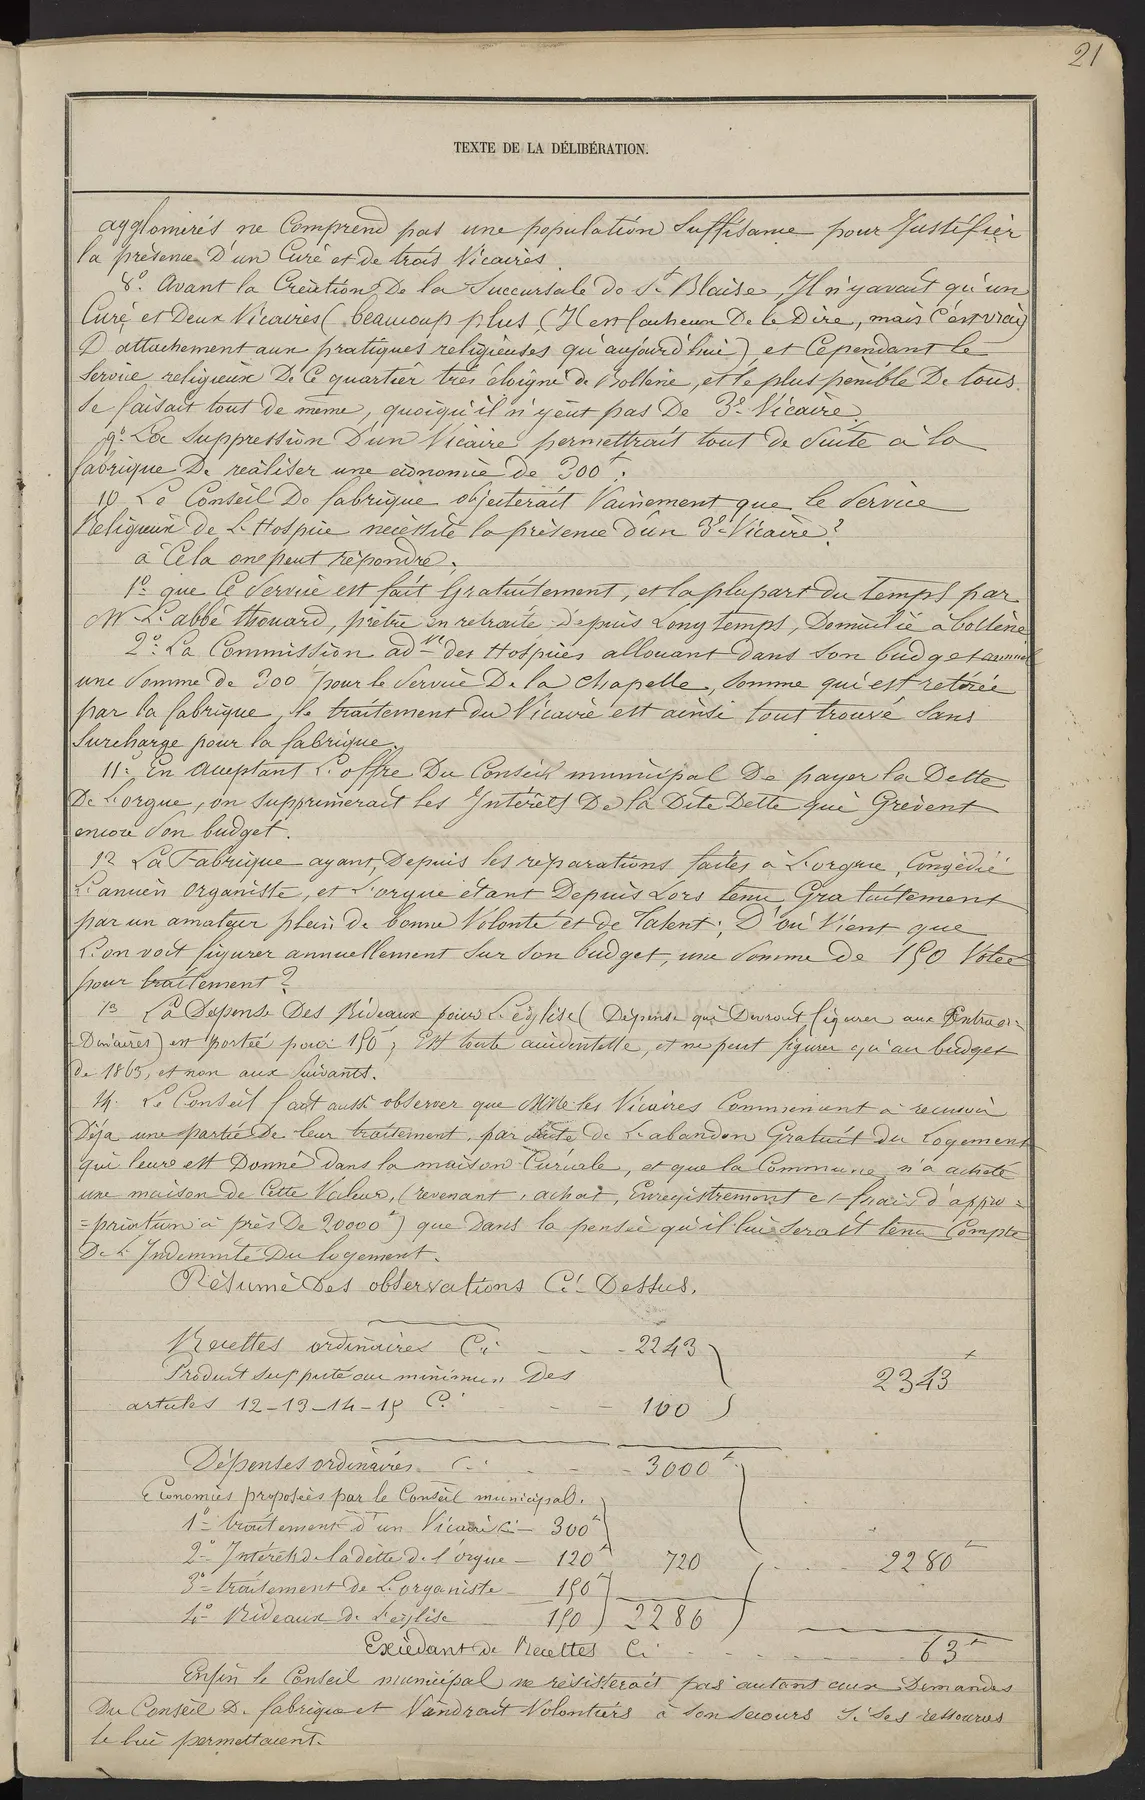 21
TEXTE DE LA DÉLIBÉRATION.
agglomérés ne Comprend pas une population Suffisante pour Justifier
la présence D'un Curé et de trois Vicaires.
8º. Avant la Création De la Succursale de St Blaise, Il n'y avait qu'un
Curé et Deux Vicaires (beaucoup plus (Il est facheux De le Dire, mais C'est vrai)
D'attachement aux pratiques religieuses qu'aujourd'hui) et Cependant le
Service religieux De Ce quartier très éloigné de Bollène, et le plus pénible De tous
Se faisait tout de même, quoiqu'il n'y eut pas De 3e Vicaire
9º. La Suppression D'un Vicaire permettrait tout de Suite à la
fabrique De réaliser une économie de 300f.
10 Le Conseil De fabrique objecterait Vainement que le Service
Religieux de L'Hospice nécessite la présence d'un 3e Vicaire?
à Cela on peut répondre:
1º que Ce Service est fait Gratuitement, et la plupart du temps par
Mr L'abbé Thouard, prêtre en retraite depuis Longtemps, Domicilié à bollène
2º. La Commission adve des Hospices allouant dans Son budget annuel
une Somme de 300f pour le Service De la Chapelle, Somme qui est retirée
par la fabrique, le traitement du Vicaire est ainsi tout trouvé Sans
Surcharge pour la fabrique.
11º: En acceptant L'offre Du Conseil municipal De payer la Dette
De L'orgue, on Supprimerait les Intérêts De la Dite Dette qui Grèvent
encore Son budget.
12 La Fabrique ayant, Depuis les réparations faites à L'orgue, Congédié
L'ancien Organiste, et L'orgue étant Depuis Lors tenu Gratuitement
par un amateur plein de bonne Volonté et de Talent; D'où Vient que
L'on voit figurer annuellement Sur Son budget, une Somme de 150 Votée
pour traitement?
13 La Dépense Des Rideaux pour L'église (Dépense qui Devrait figurer aux Extraor=
=Dinaires) est portée pour 150f; Est toute accidentelle, et ne peut figurer qu'au budget
de 1865, et non aux Suivants.
14. Le Conseil fait aussi observer que MMrs les Vicaires Commencent à recevoir
Déja une partie De leur traitement, par Suite de L'abandon Gratuit du Logement
qui leur est Donné dans la maison Curiale, et que la Commune n'a acheté
une maison de Cette Valeur, (revenant, achat, Enregistrement et frais d'appro=
=priation à près De 20000f) que Dans la pensée qu'il lui Serait tenu Compte
De L'Indemnité Du logement.
Résumé Des observations Ci Dessus.
Recettes ordinaires Ci - - - 2243
Produit supputé au minimum Des
articles 12-13-14-15 Ci - - - 100
2343f
Dépenses ordinaires Ci - - - 3000f
Economies proposées par le Conseil municipal.
1º traitement d'un Vicaire Ci - 300f
2º Intérêts de la dette de l'orgue - 120f 720 - - - 2280f
3º traitement de L'organiste - 150f
4º Rideaux de L'église 150 2280
Excédant de Recettes Ci - - - - - 63f
Enfin le Conseil municipal ne résisterait pas autant aux Demandes
Du Conseil De fabrique et Viendrait Volontiers à Son Secours Si Ses ressources
le lui permettaient.